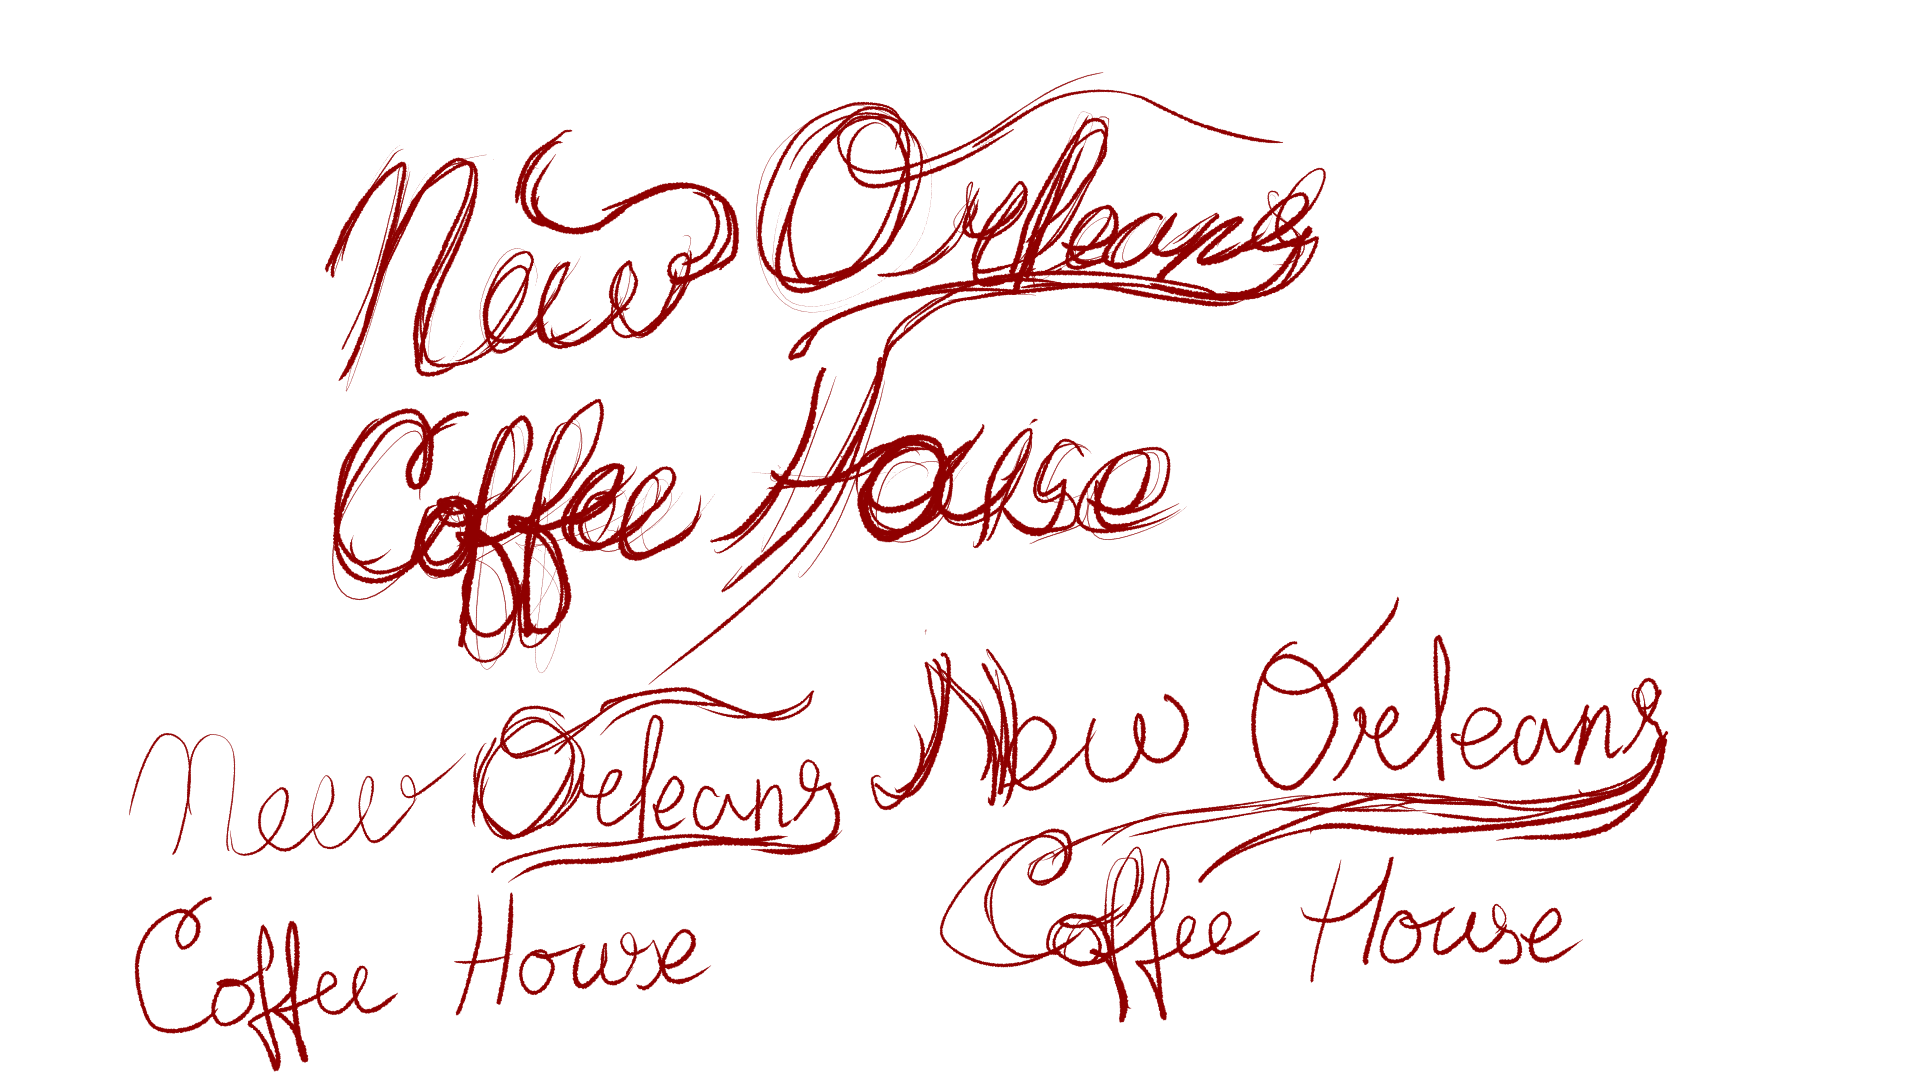 New Orleans
Coffee House
New Orleans
Coffee House
New Orleans
Coffee House